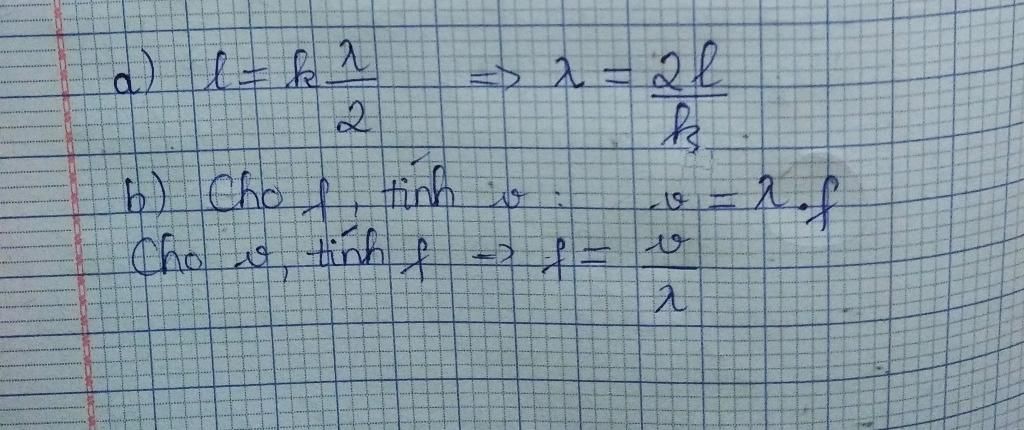 a) l = k λ/2 => λ = 2l/k
b) Cho f, tính v : v = λ.f
Cho v, tính f => f = v/λ